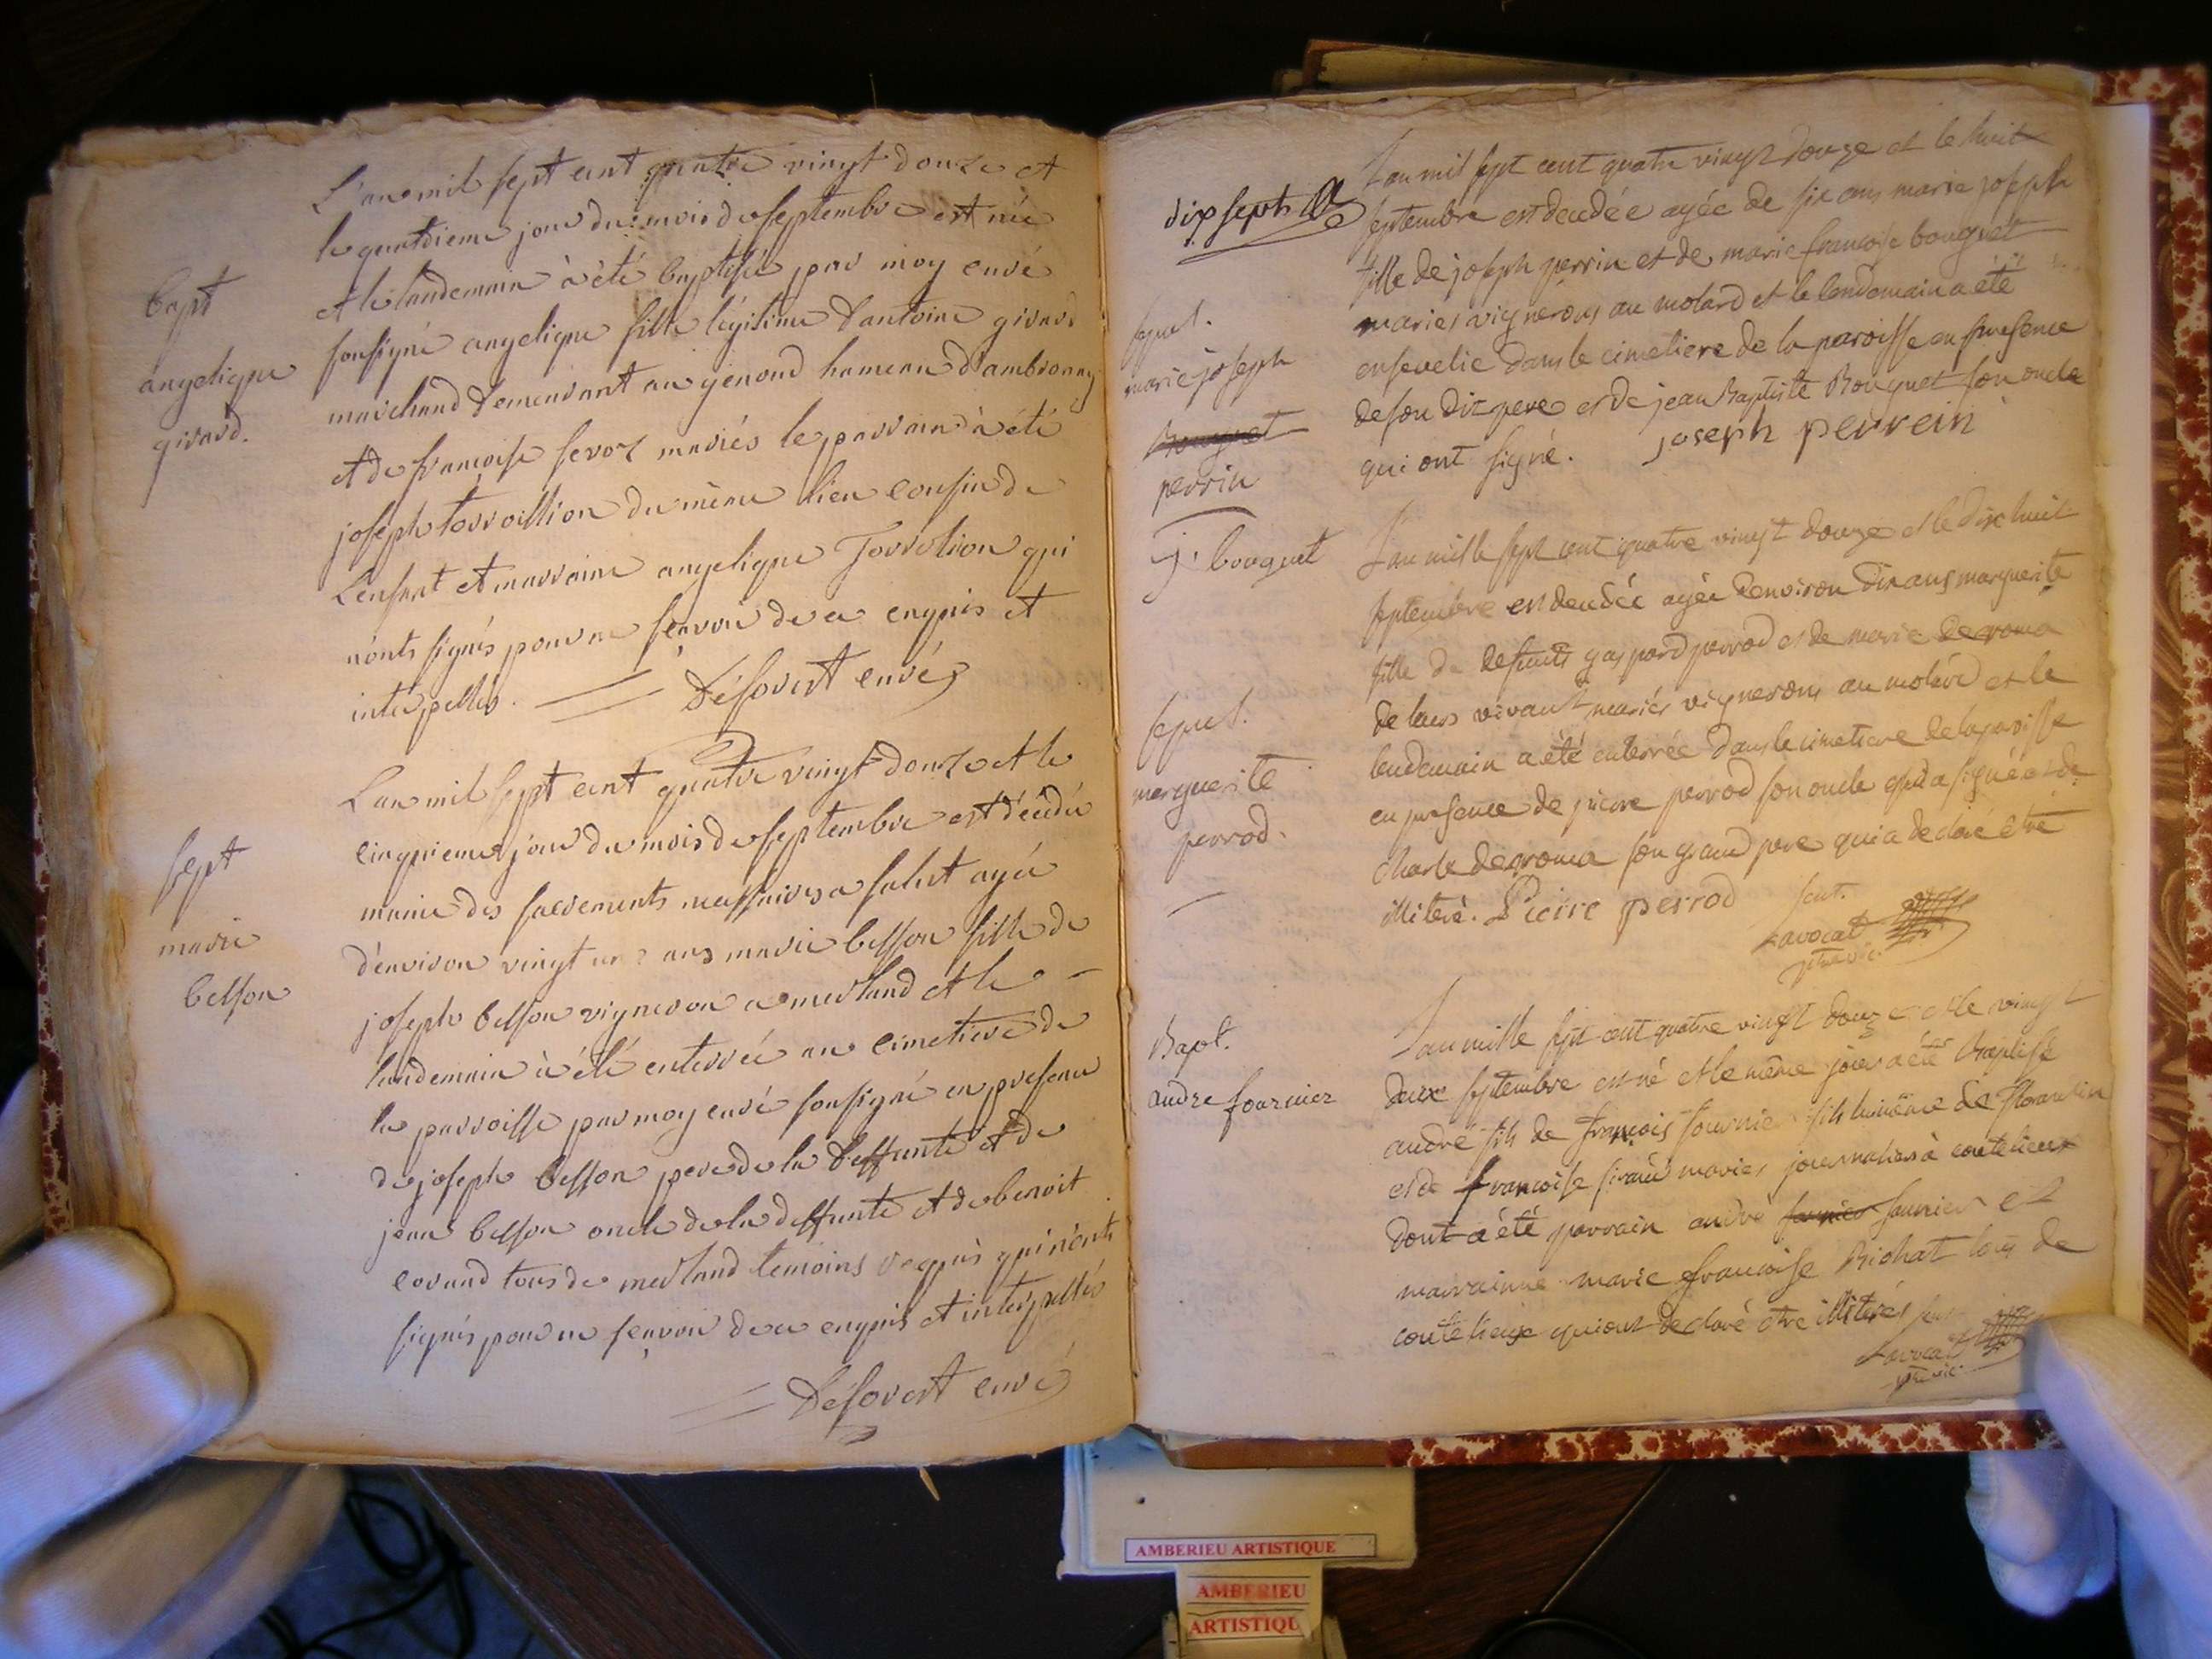 L'an mil sept cent quatre vingt douze et
le quatrieme jour du mois de septembre est née
et le landemain à été baptisée par moy curé
bapt
soussigné angelique fille légitime d'antoine girard
angelique
marchand demeurant au genoud hameau d'ambronay
girard.
et de françoise servoz mariés le parrain à été
joseph torroillion du même lieu cousin de
l'enfant et marraine angelique Torrolion qui
n'onts signés pour ne sçavoir de ce enquis et
interpellés. Désovert curé
L'an mil sept cent quatre vingt douze et le
cinquieme jour du mois de septembre est décédée
sept
munie des sacrements necessaires a salut agée
marie
d'environ vingt ans marie besson fille de
besson
joseph besson vigneron a merland et le
landemain à été enterrée au cimetiere de
la parroisse par moy curé soussigné en presence
de joseph besson pere de la deffunte et de
jean besson oncle de la deffunte et de benoit
corand tous de merland temoins requis qui n'onts
signés pour ne sçavoir de ce enquis et interpellés
Désovert curé
dix sept
L'an mil sept cent quatre vingt douze et le huit
septembre est decedée agée de six ans marie joseph
fille de joseph perrin et de marie francoise bouquet
sepul.
mariés vignerons au molard et le lendemain a été
marie joseph
ensevelie dans le cimetiere de la paroisse en presence
Bouquet
de son dit pere et de jean Baptiste Bouquet son oncle
perrin
qui ont signé. joseph perrein
j. bouquet
L'an mille sept cent quatre vingt douze et le dix huit
septembre est decedée agée d'environ dix ans marguerite
fille de defunts gaspard perrod et de marie degroma
sepul.
de leurs vivant mariés vignerons au molard et le
marguerite
lendemain a été enterrée dans le cimetiere de la paroisse
perrod.
en presence de pierre perrod son oncle qui a signé et de
charle degroma son grand pere qui a declaré etre
illiteré. Pierre perrod
Lavocat
Bapt.
L'an mille sept cent quatre vingt douze et le vingt
andre fournier
deux septembre est né et le même jour a été baptisé
andré fils de françois fournier fils luimême de
et de francoise mariés journaliers à coutelieux
dont a été parrain andré fournier et
marrainne marie francoise Bichat tous de
coutelieux qui ont declaré être illiterés
Lavocat
AMBERIEU ARTISTIQUE
AMBERIEU
ARTISTIQU